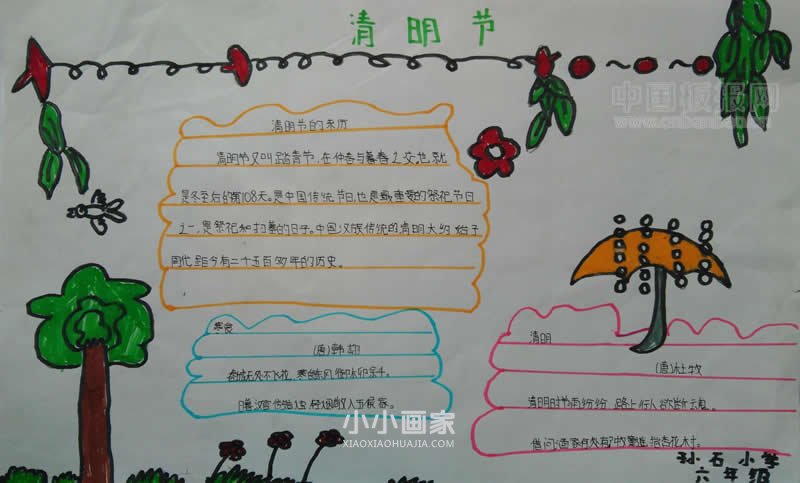 清明节
中国板报网
www.cnbanb.com
清明节的来历
清明节又叫踏青节,在仲春与暮春之交,也就
是冬至后的第108天。是中国传统节日,也是最重要的祭祀节日
之一,是祭祀和扫墓的日子。中国汉族传统的清明大约始于
周代,距今有二千五百多年的历史。
寒食
(唐)韩翃
春城无处不飞花,寒食东风御柳斜。
日暮汉宫传蜡烛,轻烟散入五侯家。
清明
(唐)杜牧
清明时节雨纷纷,路上行人欲断魂。
借问酒家何处有?牧童遥指杏花村。
小小画家
XIAOXIAOHUAJIA.COM
孙石小学
六年级